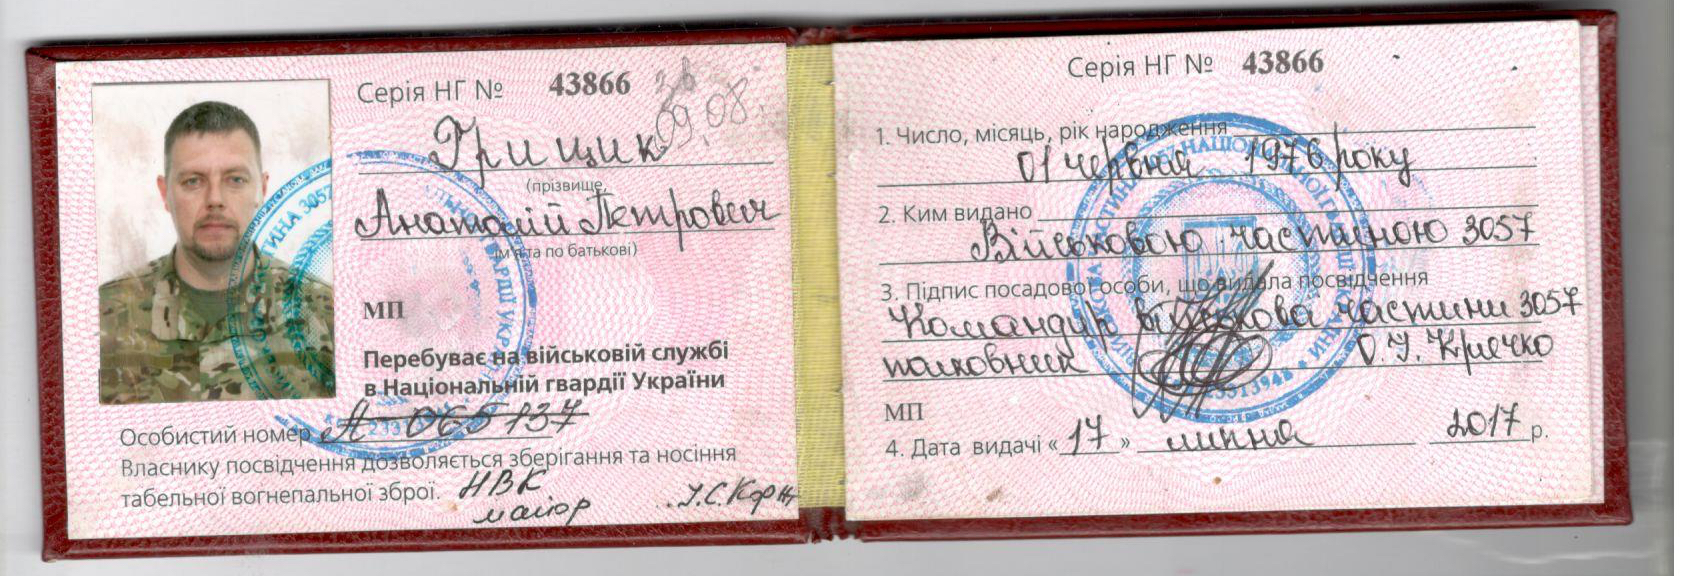 Серія НГ № 43866
Грицик
(прізвище,
Анатолій Петрович
ім'я та по батькові)
МП
Перебуває на військовій службі
в Національній гвардії України
Особистий номер А - 065137
Власнику посвідчення дозволяється зберігання та носіння
табельної вогнепальної зброї. НВК
майор
Серія НГ № 43866
1. Число, місяць, рік народження
01 червня 1976 року
2. Ким видано
Військовою частиною 3057
3. Підпис посадової особи, що видала посвідчення
Командир військова частини 3057
полковник
МП
4. Дата видачі « 17 » липня 2017 р.